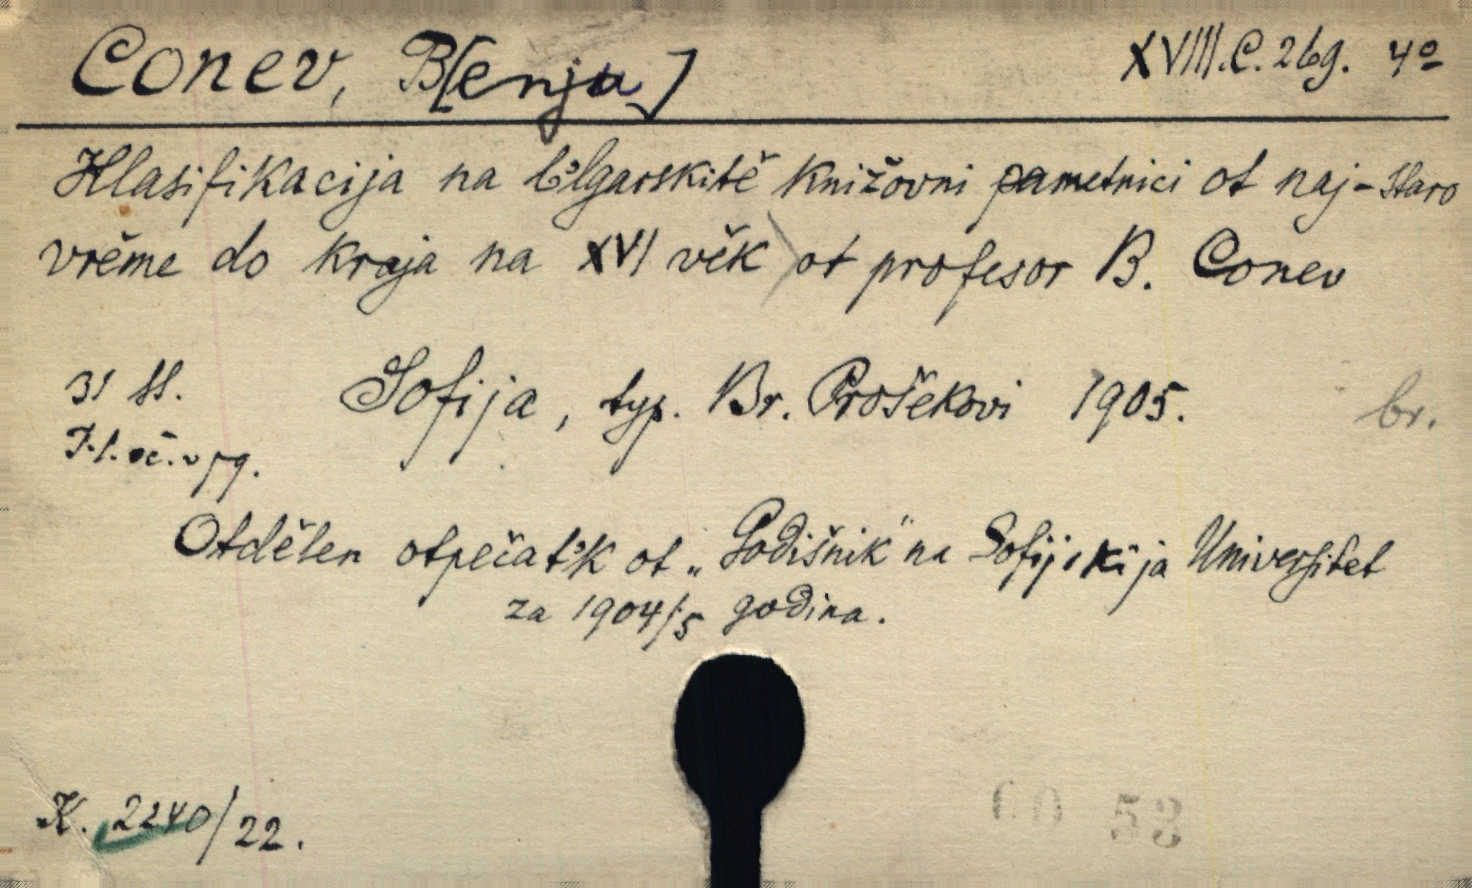 Conev, B[enja] XVIII.C.269. 4º
Klasifikacija na b'lgarskitě knižovni pametnici ot naj-staro
vrěme do kraja na XVI věk ot profesor B. Conev
31 ss. Sofija, typ. Br. Prošekovi 1905. br.
Otdělen otpečat'k ot „Godišnik" na Sofijskija Universitet
za 1904/5 godina.
K. 2240/22.
60 53